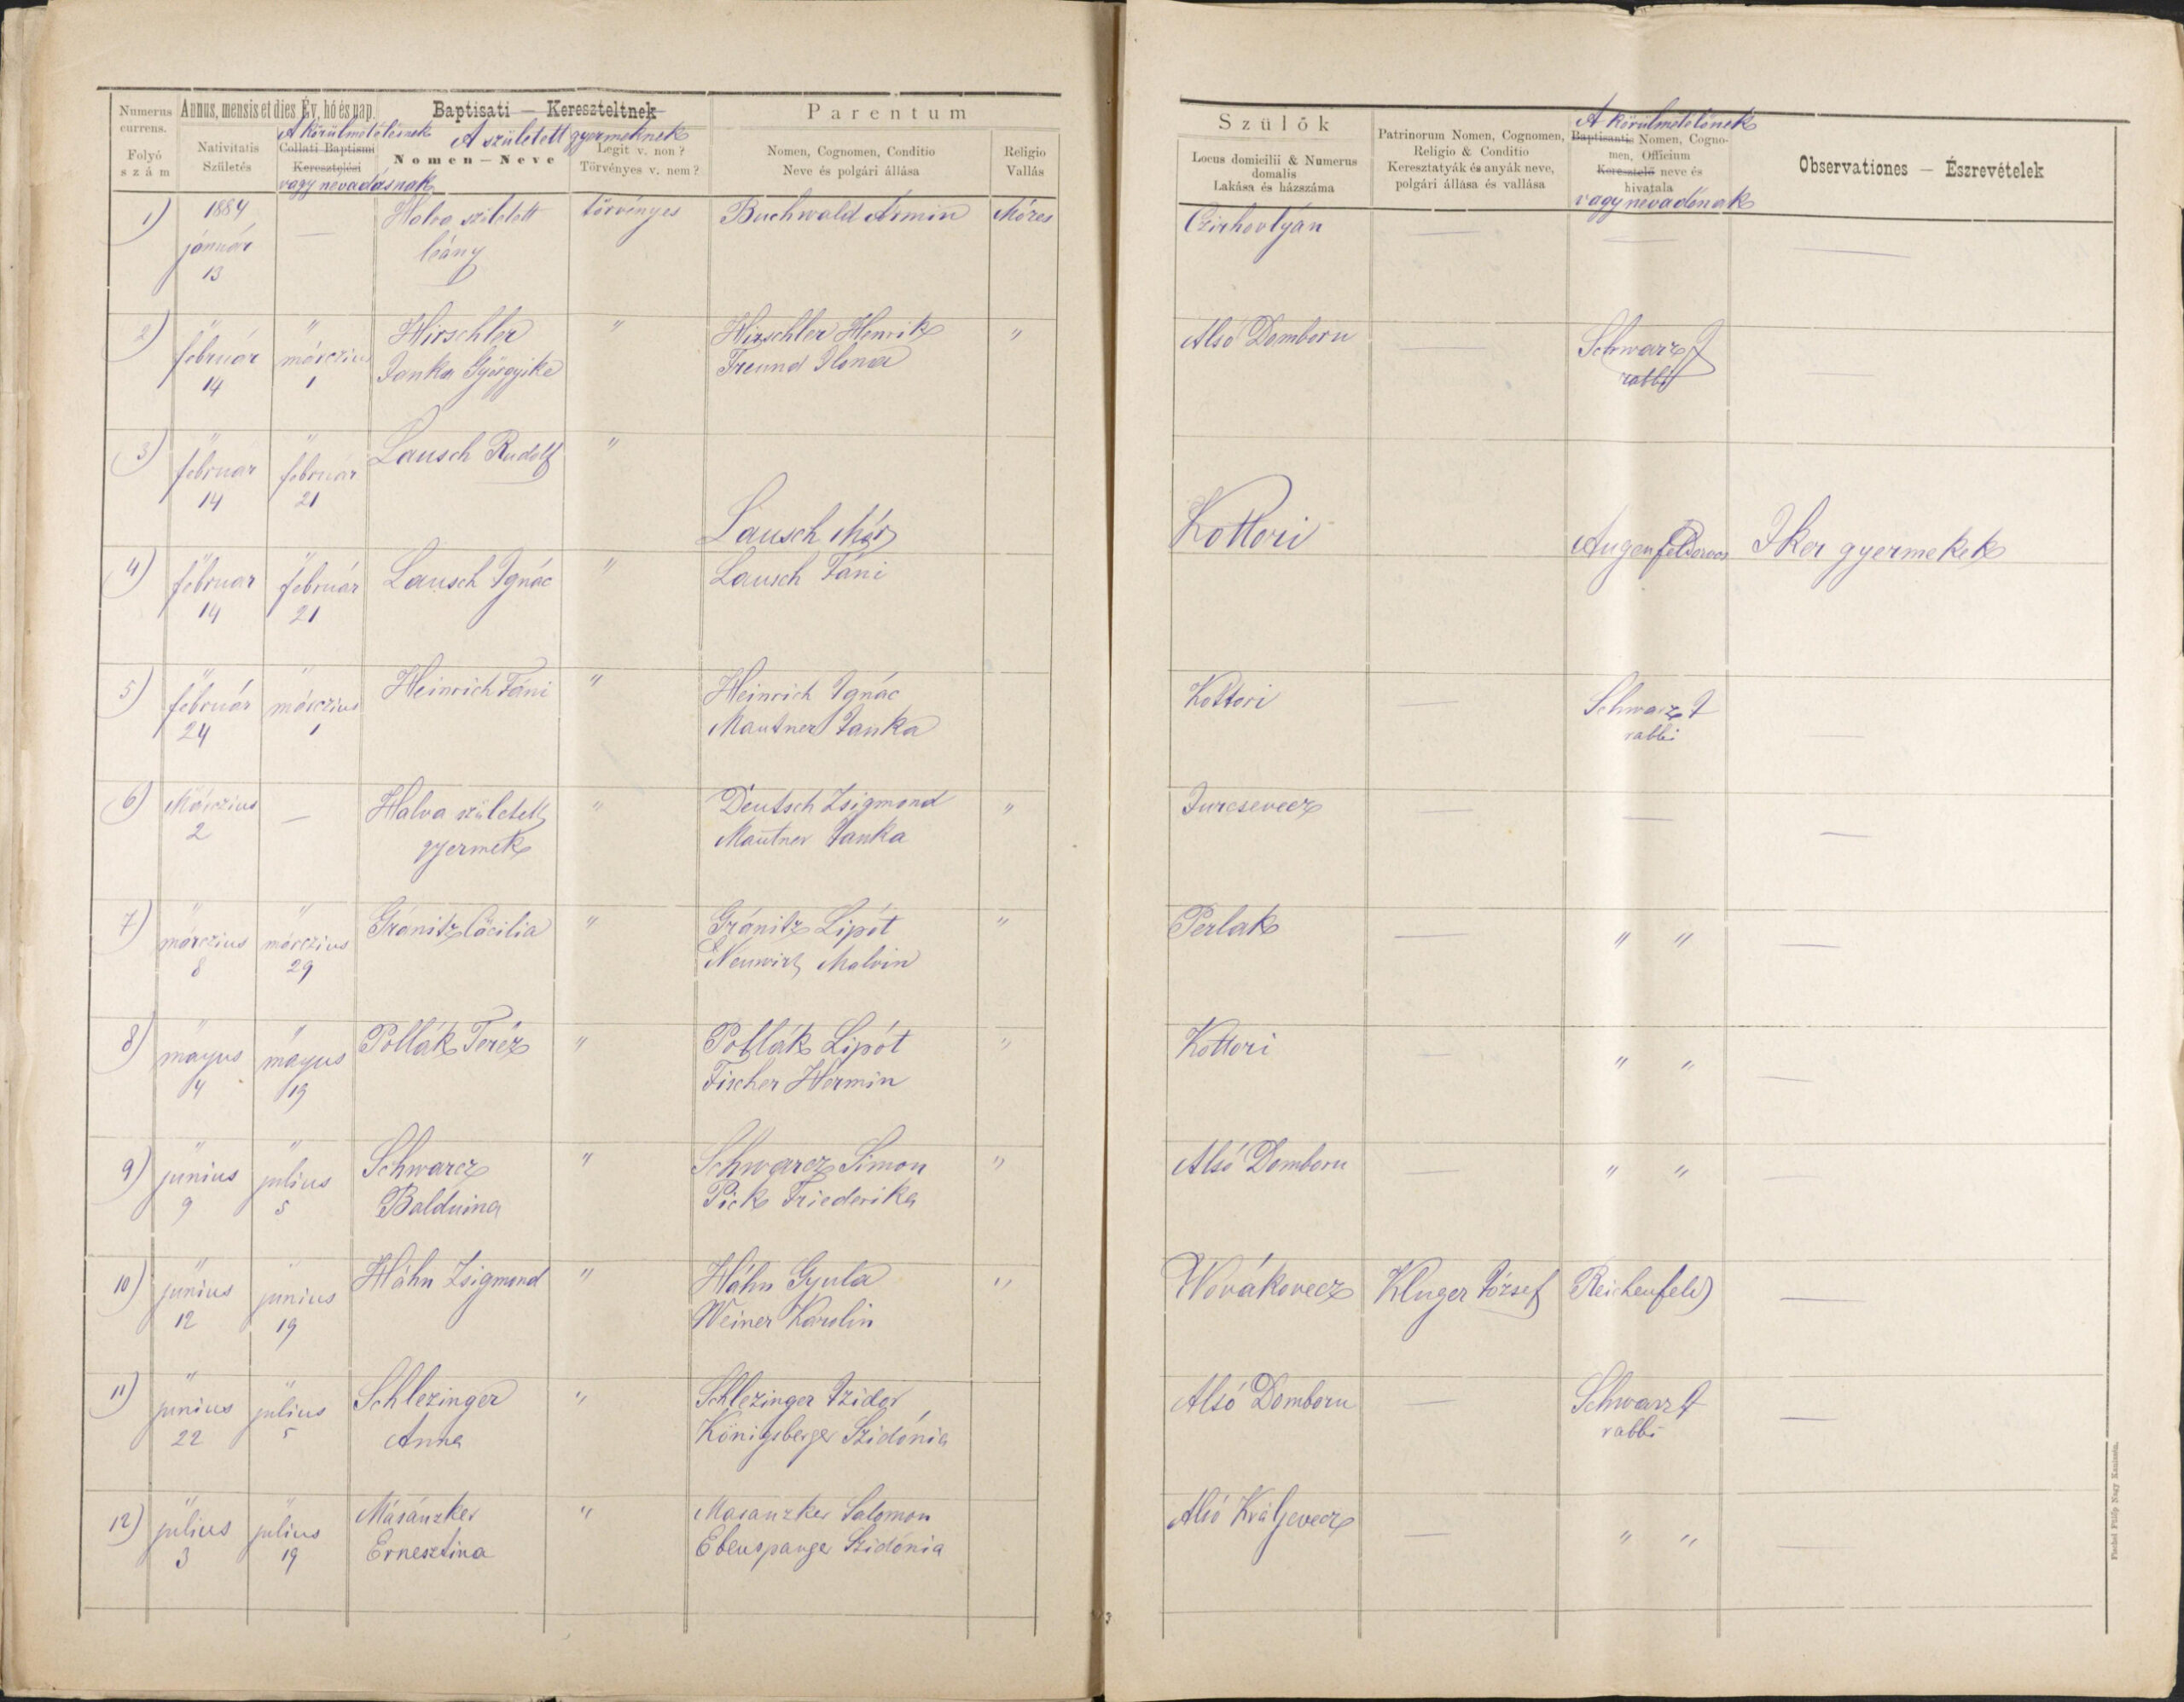 Numerus currens.
Folyó szám
Annus, mensis et dies Év, hó és nap.
Nativitatis
Születés
A körülmetélésnek
Collati Baptismi
Keresztelési
vagy névadásnak
Baptisati — Kereszteltnek
A született gyermeknek
Nomen — Neve
Legit v. non?
Törvényes v. nem?
Parentum
Nomen, Cognomen, Conditio
Neve és polgári állása
Religio
Vallás
Szülők
Locus domicilii & Numerus
domalis
Lakása és házszáma
Patrinorum Nomen, Cognomen,
Religio & Conditio
Keresztatyák és anyák neve,
polgári állása és vallása
A körülmetélőnek
Baptisantis Nomen, Cogno-
men, Officium
Keresztelő neve és
hivatala
vagy névadónak
Observationes — Észrevételek
1) 1884 — Halva született törvényes Buchwald Ármin Mózes Czirkovlyán — — —
január leány
13
2) " " Hirschler " Hirschler Henrik " Alsó Domboru — Schwarz J —
február márczius Janka Györgyike Freund Ilona rabbi
14 1
3) " " Lausch Rudolf "
február február
14 21
Lausch Mór Kottori Iker gyermekek
4) " " Lausch Ignác " Lausch Fáni
február február
14 21
5) " " Heinrich Fáni " Heinrich Ignác Kottori — Schwarz J —
február márczius Mautner Janka rabbi
24 1
6) Márczius — Halva született " Deutsch Zsigmond " Jurcsevecz — — —
2 gyermek Mautner Janka
7) " " Gránitz Cäcilia " Gránitz Lipót " Perlak — " " —
márczius márczius Neuwirt Malvin
8 29
8) " " Pollák Teréz " Pollák Lipót " Kottori — " " —
május május Fischer Hermin
4 19
9) " " Schwarcz " Schwarcz Simon " Alsó Domboru — " " —
június július Balduina Pick Friederika
9 5
10) " " Háhn Zsigmond " Háhn Gyula " Novákovecz Kluger József Reichenfeld —
június június Weiner Karolin
12 19
11) " " Schlezinger " Schlezinger Izidor Alsó Domboru — Schwarz J —
június július Anna Königsberger Szidónia rabbi
22 5
12) " " Másánzker " Masanzker Salomon Alsó Králjevecz — " " —
július július Ernesztina Ebenspanger Szidónia
3 19
Fischel Fülöp Nagy Kanizsán.